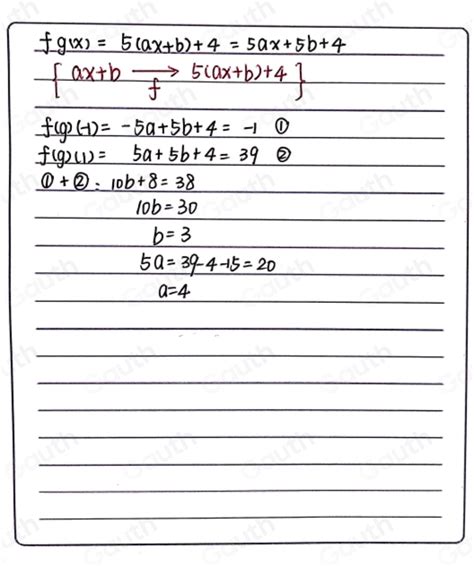 fg(x) = 5(ax+b)+4 = 5ax+5b+4
{ ax+b ⟶ 5(ax+b)+4 }
f
f(g)(-1) = -5a+5b+4 = -1 ①
f(g)(1) = 5a+5b+4 = 39 ②
①+②: 10b+8 = 38
10b = 30
b = 3
5a = 39-4-15 = 20
a=4
Gauth